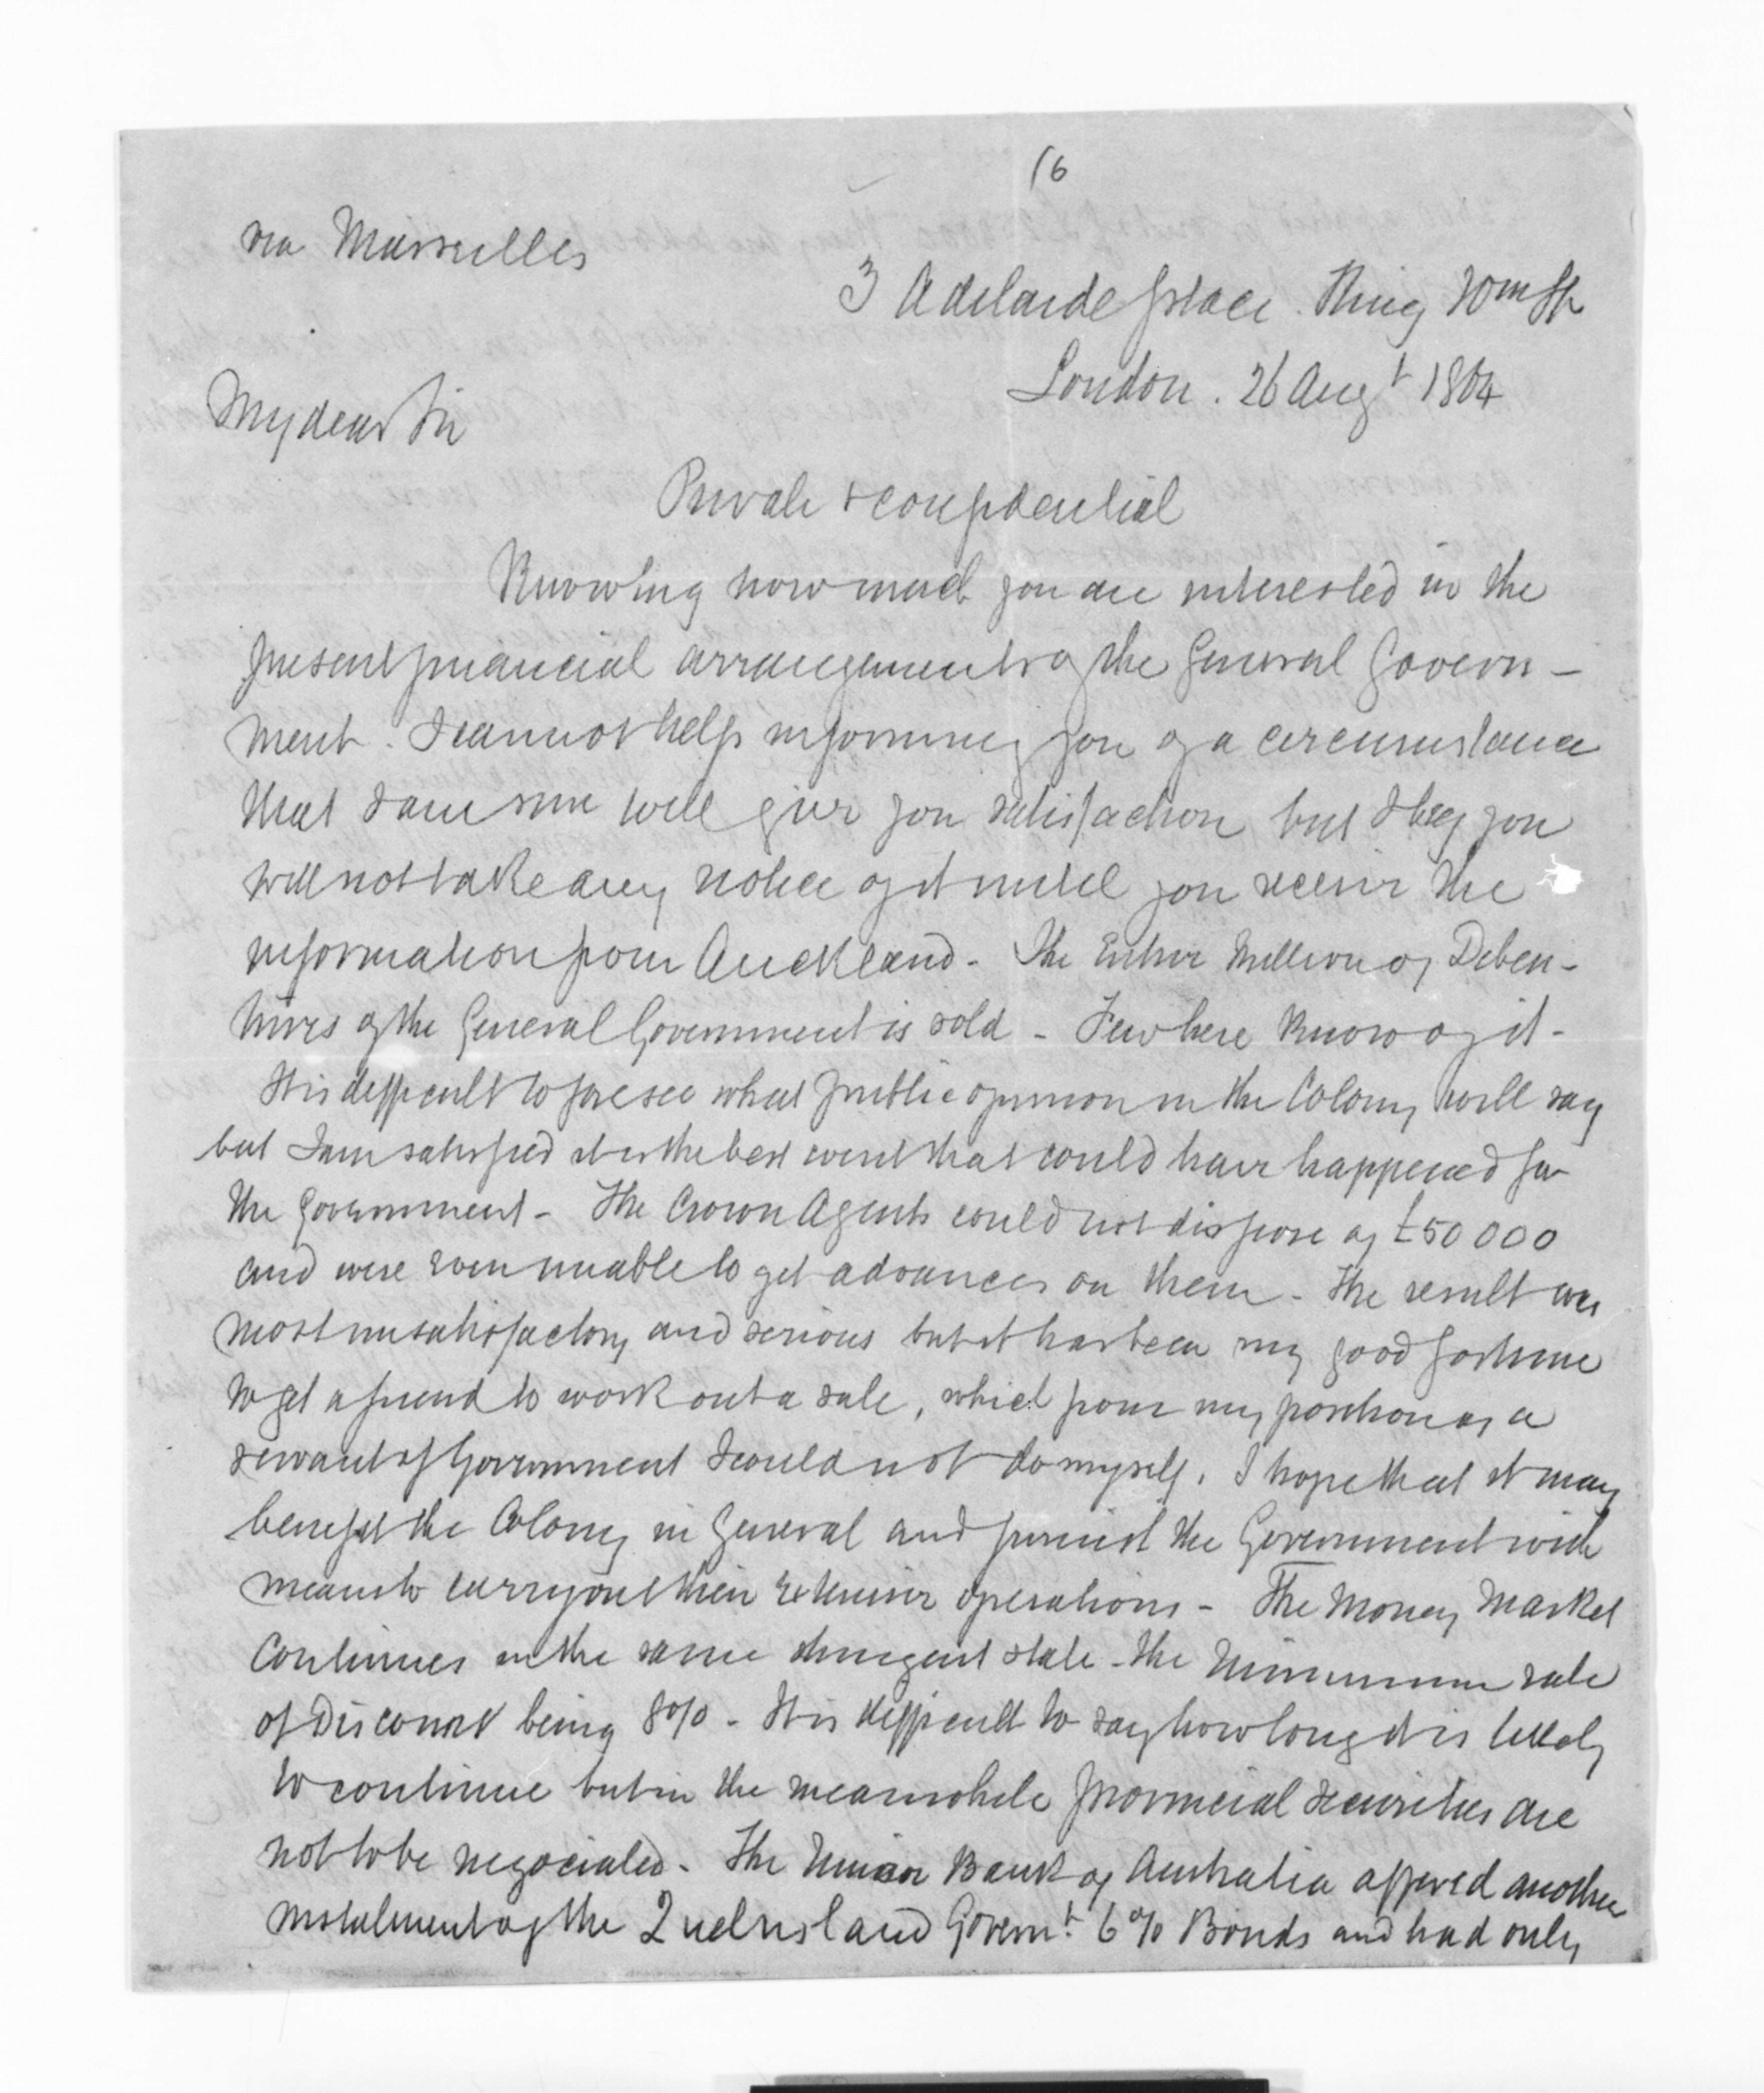 16
via Marseilles
3 Adelaide place. King Wm St
London. 26 Augt 1864
My dear Sir
Private & confidential
Knowing how much you are interested in the
present financial arrangements of the General Govern-
ment. I cannot help informing you of a circumstance
that I am sure will give you satisfaction but I beg you
will not take any notice of it until you receive the
information from Auckland - The Entire Million of Deben-
tures of the General Government is sold - Few here know of it -
It is difficult to foresee what public opinion in the Colony will say
but I am satisfied it is the best event that could have happened for
the Government - The Crown Agents could not dispose of £50 000
and were even unable to get advances on them - The result was
most unsatisfactory and serious but it has been my good fortune
to get a friend to work out a sale, which from my position as a
servant of Government I could not do myself. I hope that it may
benefit the Colony in General and furnish the Government with
means to carry out their Extensive operations - The Money Market
continues in the same stringent state - the Minimum rate
of Discount being 8% - It is difficult to say how long it is likely
to continue but in the meanwhile provincial securities are
not to be negociated - The Union Bank of Australia offered another
instalment of the Queensland Governt. 6% Bonds and had only